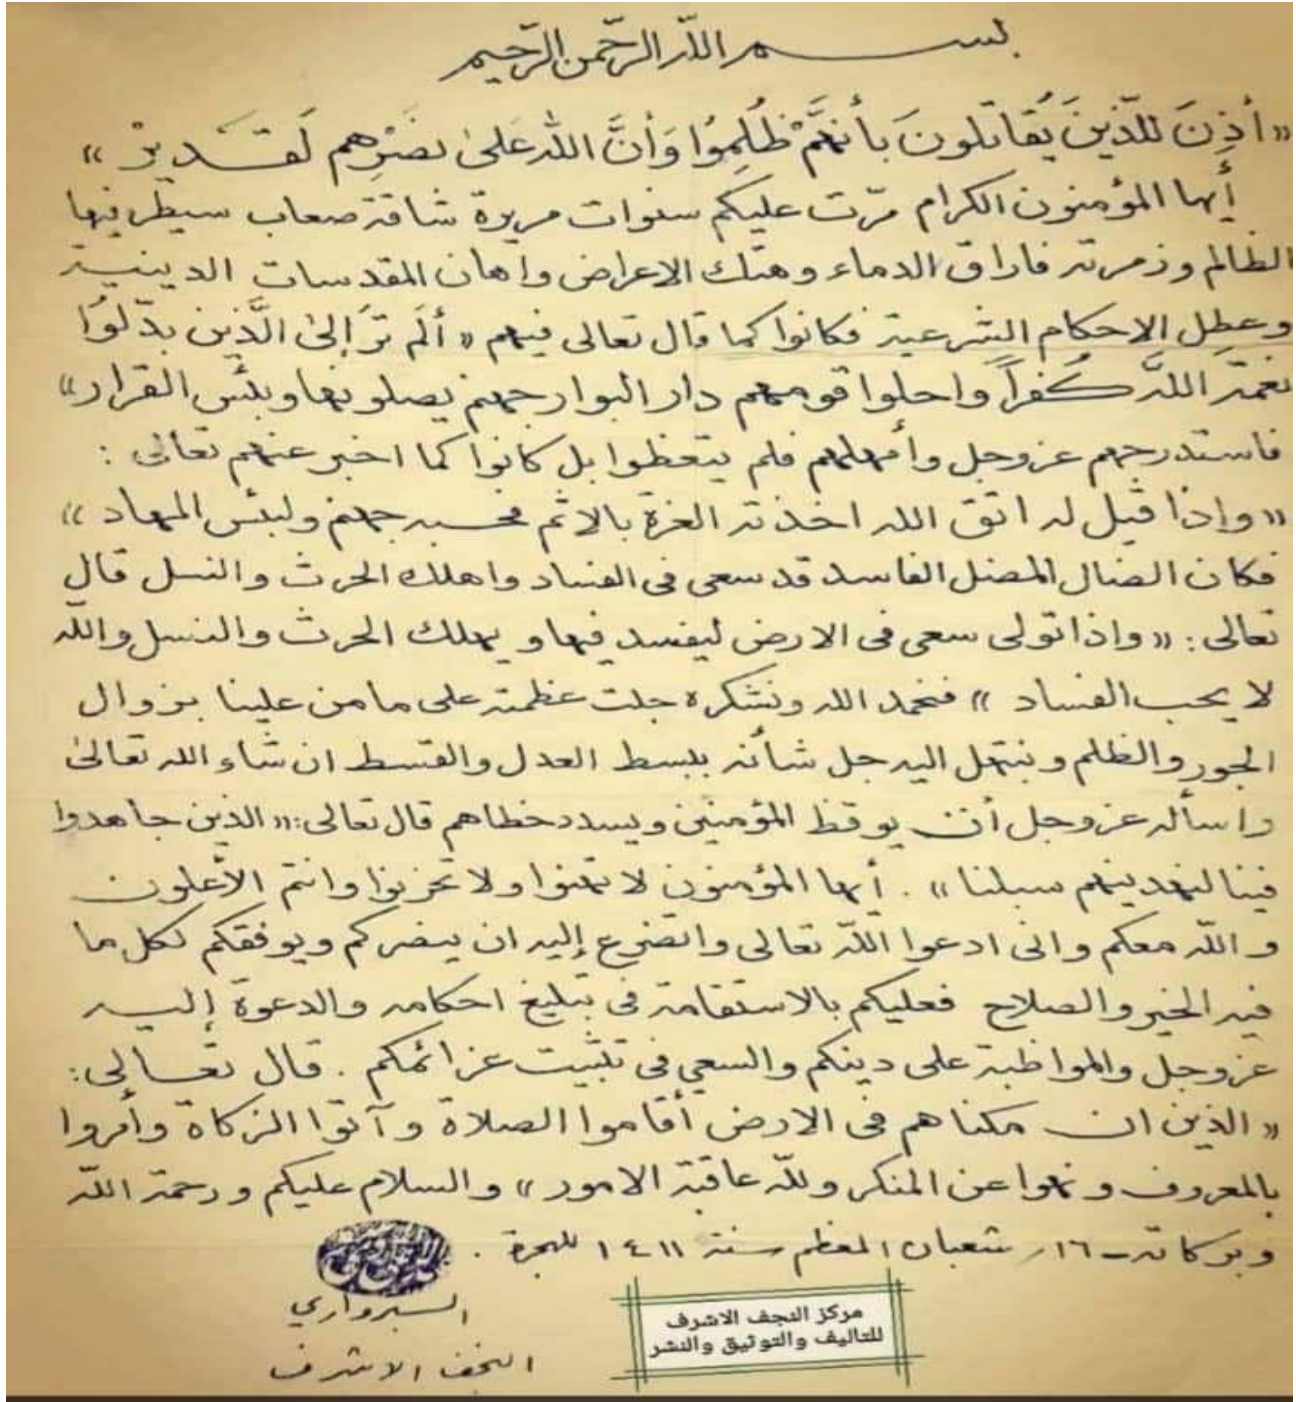 بسم الله الرحمن الرحيم
«أُذِنَ للَّذينَ يُقاتلونَ بأنهَّم ظُلِمُوا وَأنَّ الله عَلىٰ نصرِهم لَقَديرْ»
أيها المؤمنون الكرام مرّت عليكم سنوات مريرة شاقة صعاب سيطر فيها
الظالم وزمرته فاراق الدماء وهتك الاعراض واهان المقدسات الدينية
وعطل الاحكام الشرعية فكانوا كما قال تعالى فيهم «ألَم تَرَ إلىٰ الَّذين بدّلوُا
نعمة اللَّه كُفراً واحلوا قومهم دار البوار جهنم يصلونها وبئس القرار»
فاستدرجهم عز وجل وأمهلهم فلم يتعظوا بل كانوا كما اخبر عنهم تعالى :
«واذا قيل له اتق الله اخذته العزة بالاثم فحسبه جهنم ولبئس المهاد»
فكان الضال المضل الفاسد قد سعى في الفساد واهلك الحرث والنسل قال
تعالى: «واذا تولى سعى في الارض ليفسد فيها ويهلك الحرث والنسل والله
لا يحب الفساد» فنحمد الله ونشكره جلت عظمته على ما من علينا بزوال
الجور والظلم ونبتهل اليه جل شأنه ببسط العدل والقسط ان شاء الله تعالىٰ
واسأله عز وجل أن يوقظ المؤمنين ويسدد خطاهم قال تعالى: «الذين جاهدوا
فينا لنهدينهم سبلنا» . أيها المؤمنون لا تهنوا ولا تحزنوا وانتم الأعلون
والله معكم واني ادعوا الله تعالى واتضرع إليه ان ينصركم ويوفقكم لكل ما
فيه الخير والصلاح فعليكم بالاستقامة في تبليغ احكامه والدعوة إليه
عز وجل والمواظبة على دينكم والسعي في تثبيت عزائمكم . قال تعالى:
«الذين ان مكناهم في الارض أقاموا الصلاة وآتوا الزكاة وأمروا
بالمعروف ونهوا عن المنكر ولله عاقبة الامور» والسلام عليكم ورحمة الله
وبركاته - ١٦ر شعبان المعظم سنة ١٤١١ للهجرة .
السبزواري
النجف الاشرف
مركز النجف الاشرف
للتاليف والتوثيق والنشر